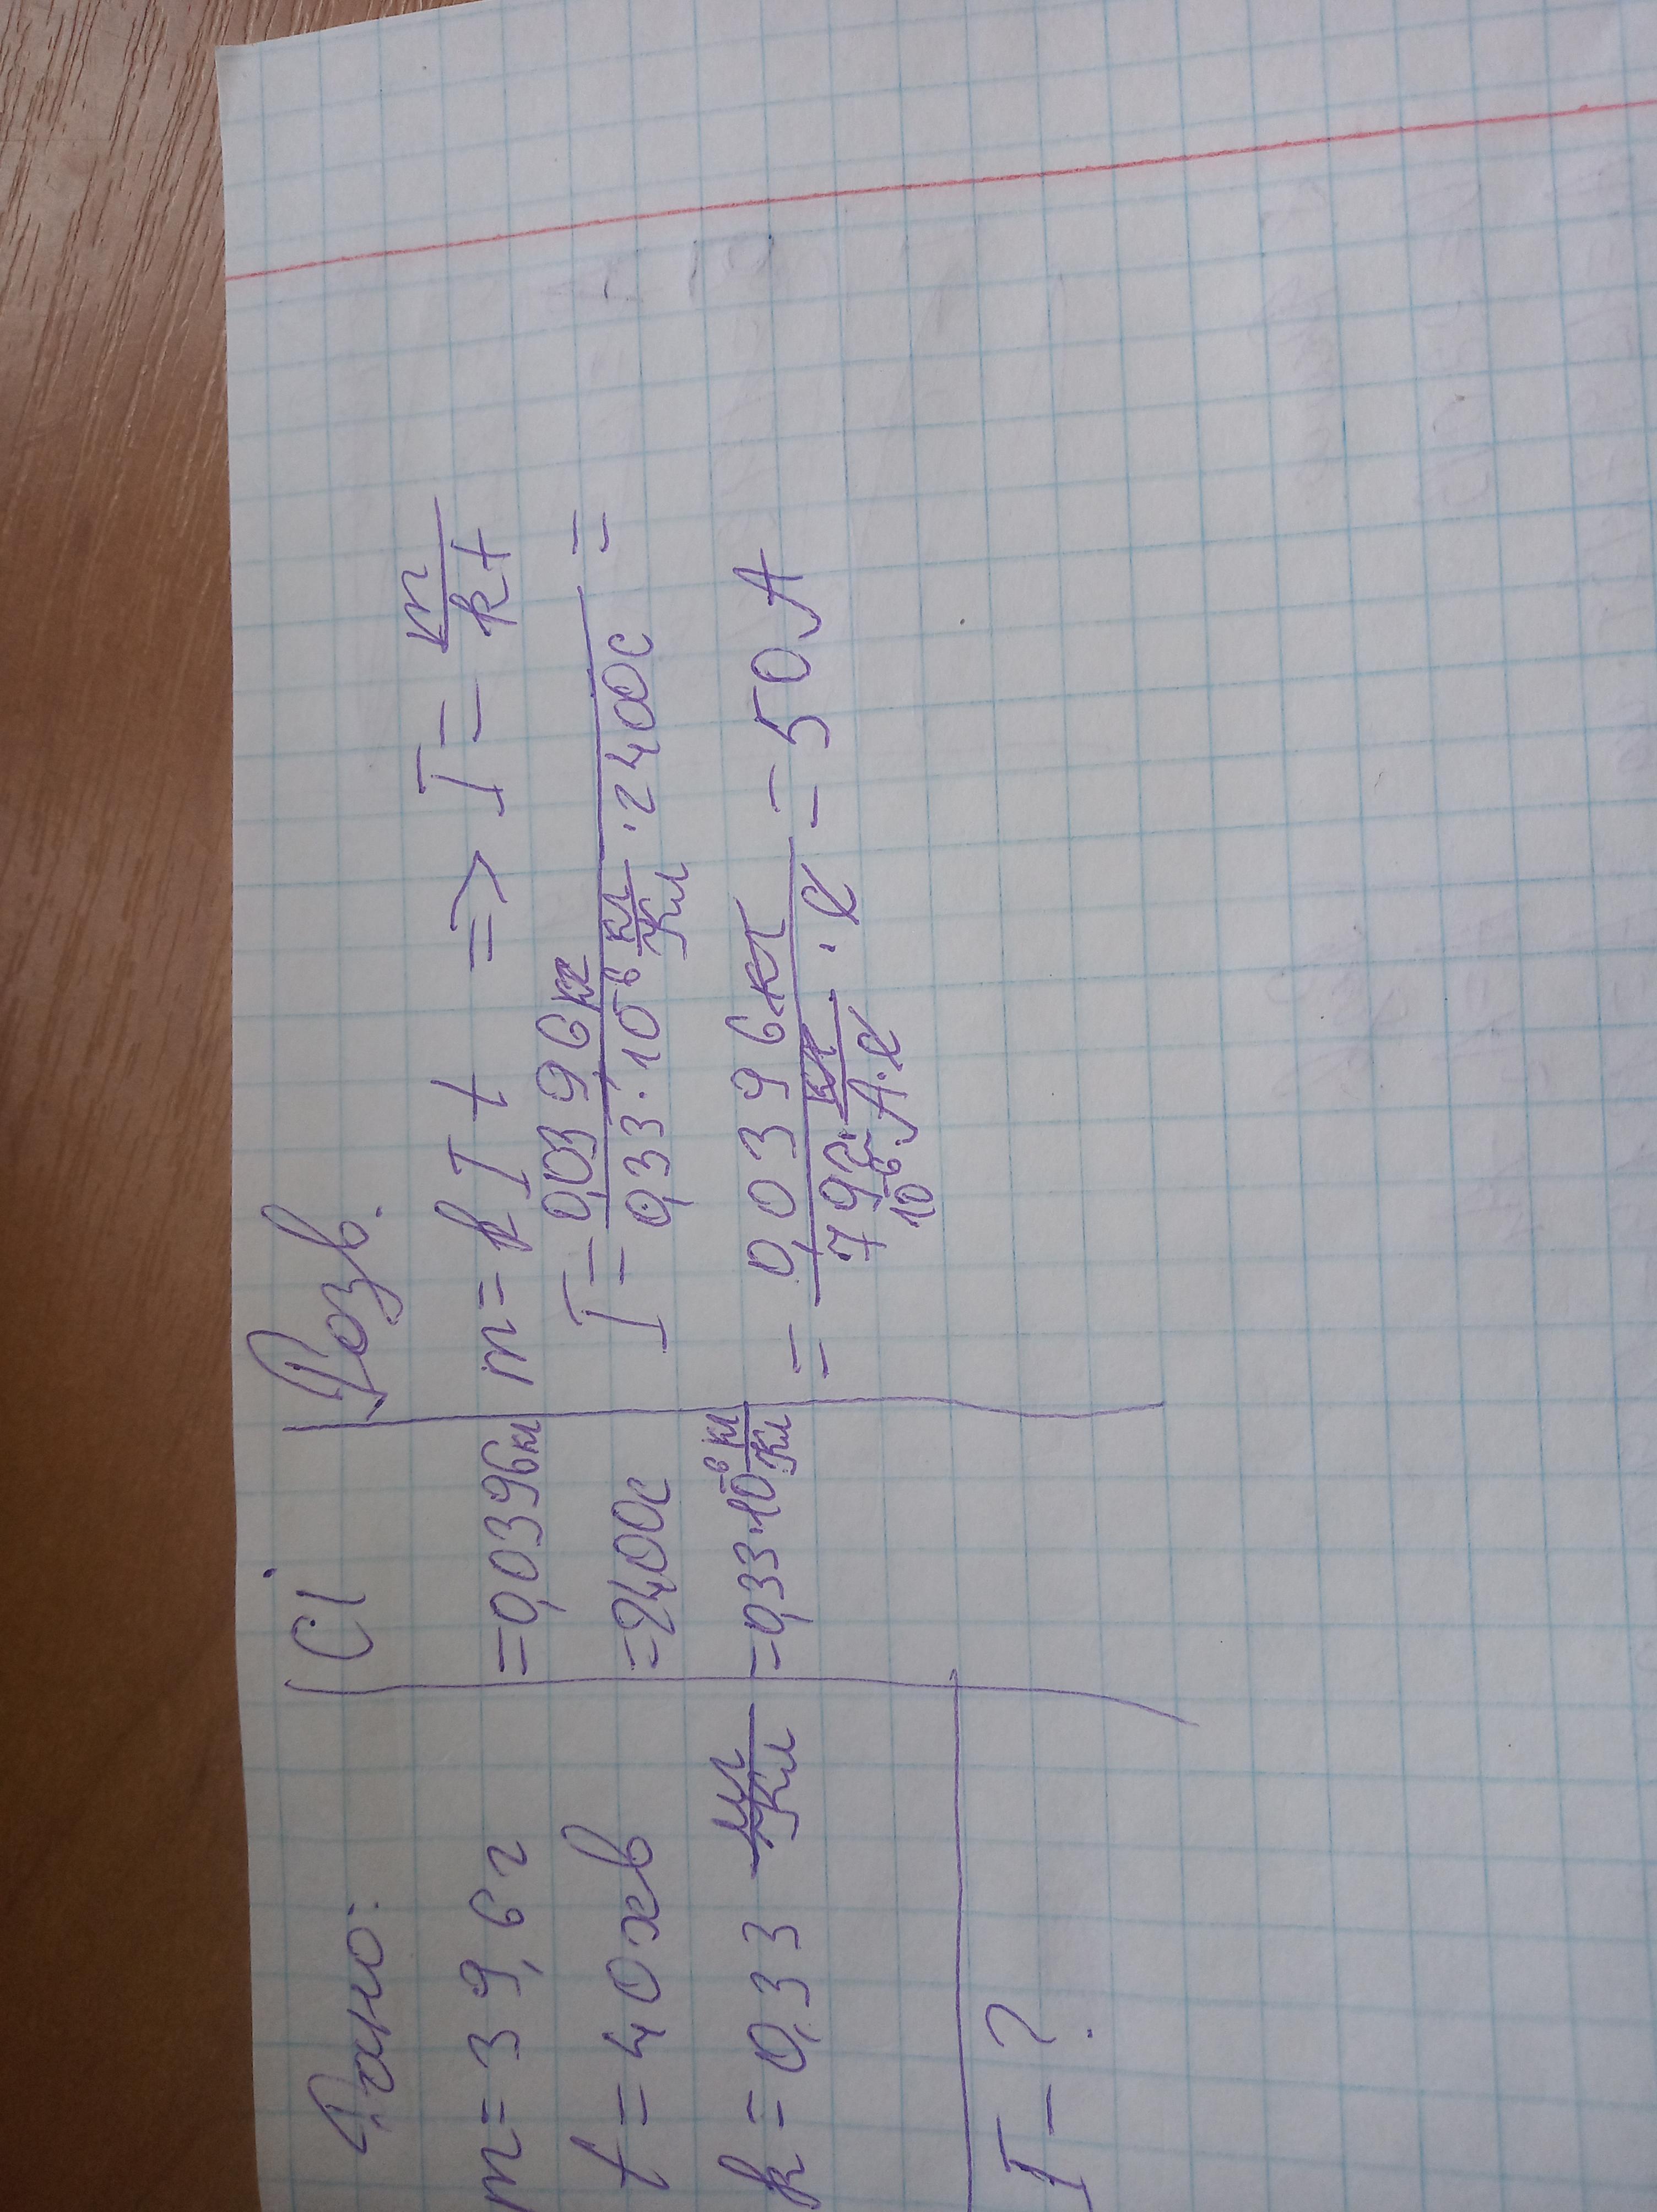 Дано:
m = 39,6 г
t = 40 хв
k = 0,33 мг/Кл
I - ?
Сі
= 0,0396 кг
= 2400с
= 0,33·10⁻⁶ кг/Кл
Розв.
m = k I t => I = m/kt
I = 0,0396 кг / 0,33·10⁻⁶ кг/Кл · 2400с =
= 0,0396 кг / 792·10⁻⁶ кг/А·с · с = 50 А